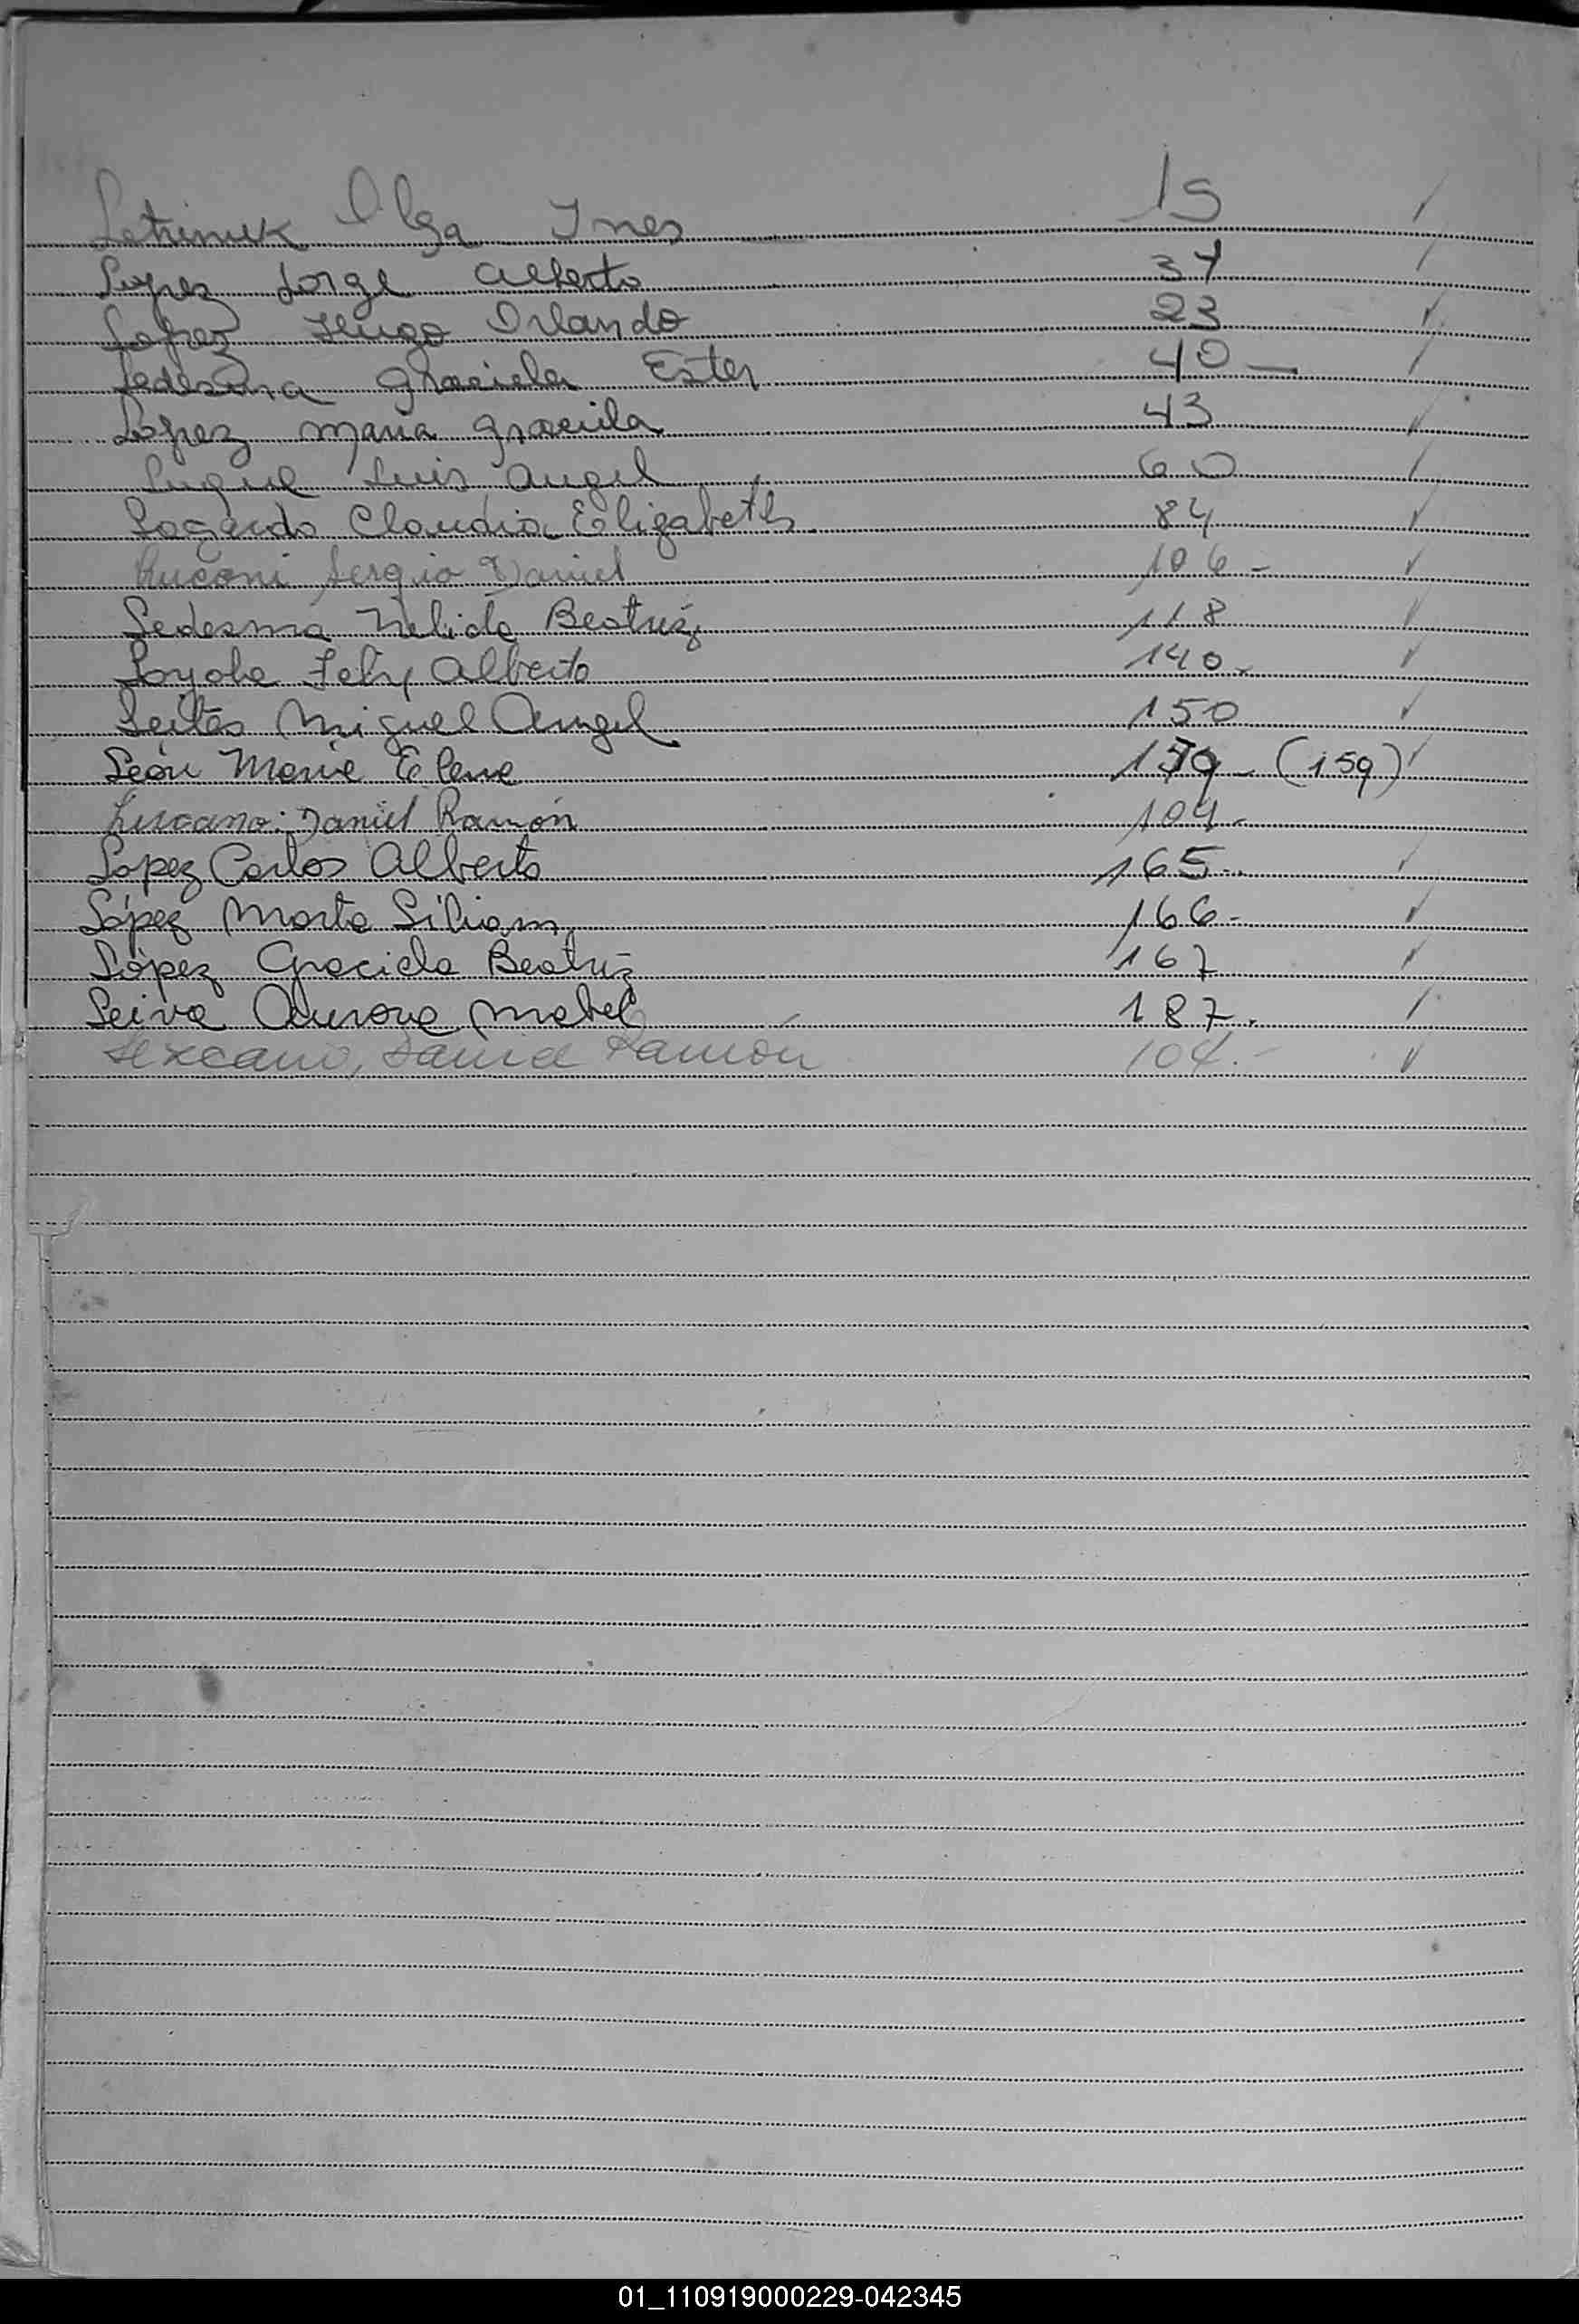 Letriniuk Olga Ines 15
Lopez Jorge Alberto 37
Lopez Hugo Orlando 23
Ledesma Graciela Ester 40
López Maria Graciela 43
Luque Luis Angel 60
Claudia Elizabeth 84
Sergio Daniel 106
Ledesma Nelida Beatriz 118
Loyola Felix Alberto 140
Leites Miguel Angel 150
León Maria Elena (159)
Lezcano Daniel Ramón 104
Lopez Carlos Alberto 165
López Marta Liliam 166
López Graciela Beatriz 167
Leiva Aurora Mabel 187
Lezcano, Daniel Ramón 104
01_110919000229-042345